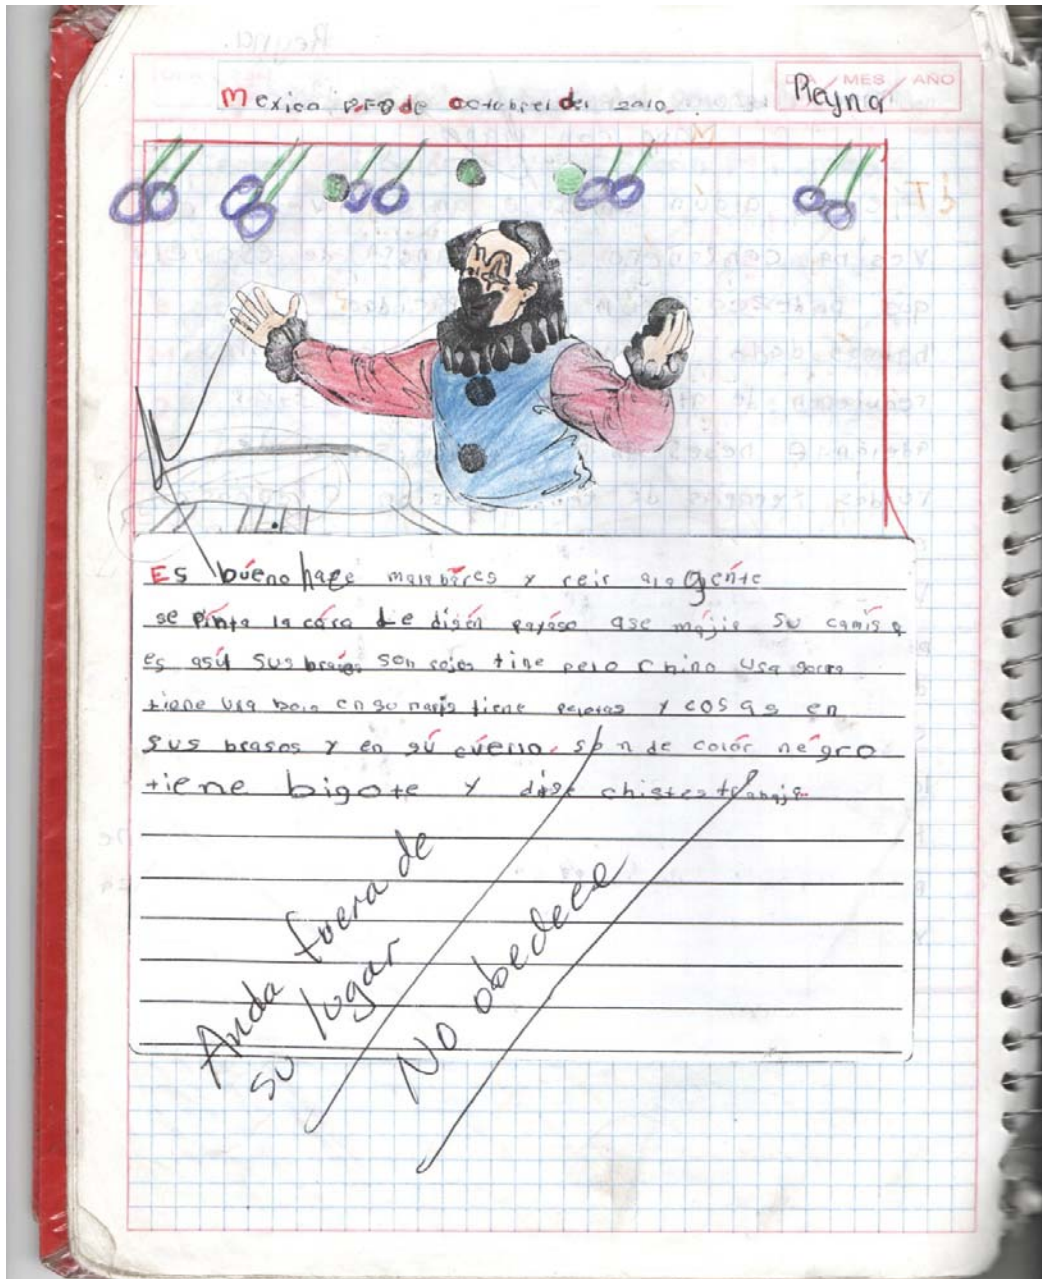 DIA MES AÑO
Reyna
Mexico D.F 8 de octubre del 2010.
Es bueno hace malabares y reir ala gente
se pinta la cara Le disen payaso qse su camisa
es asul sus brasos son rojos tine pelo chino usa gorra
tiene una bola en su naris tiene pelotas y cosas en
sus brasos y en su cuello. son de color negro
tiene bigote y dise chistes
Anda fuera de
su lugar
No obedece